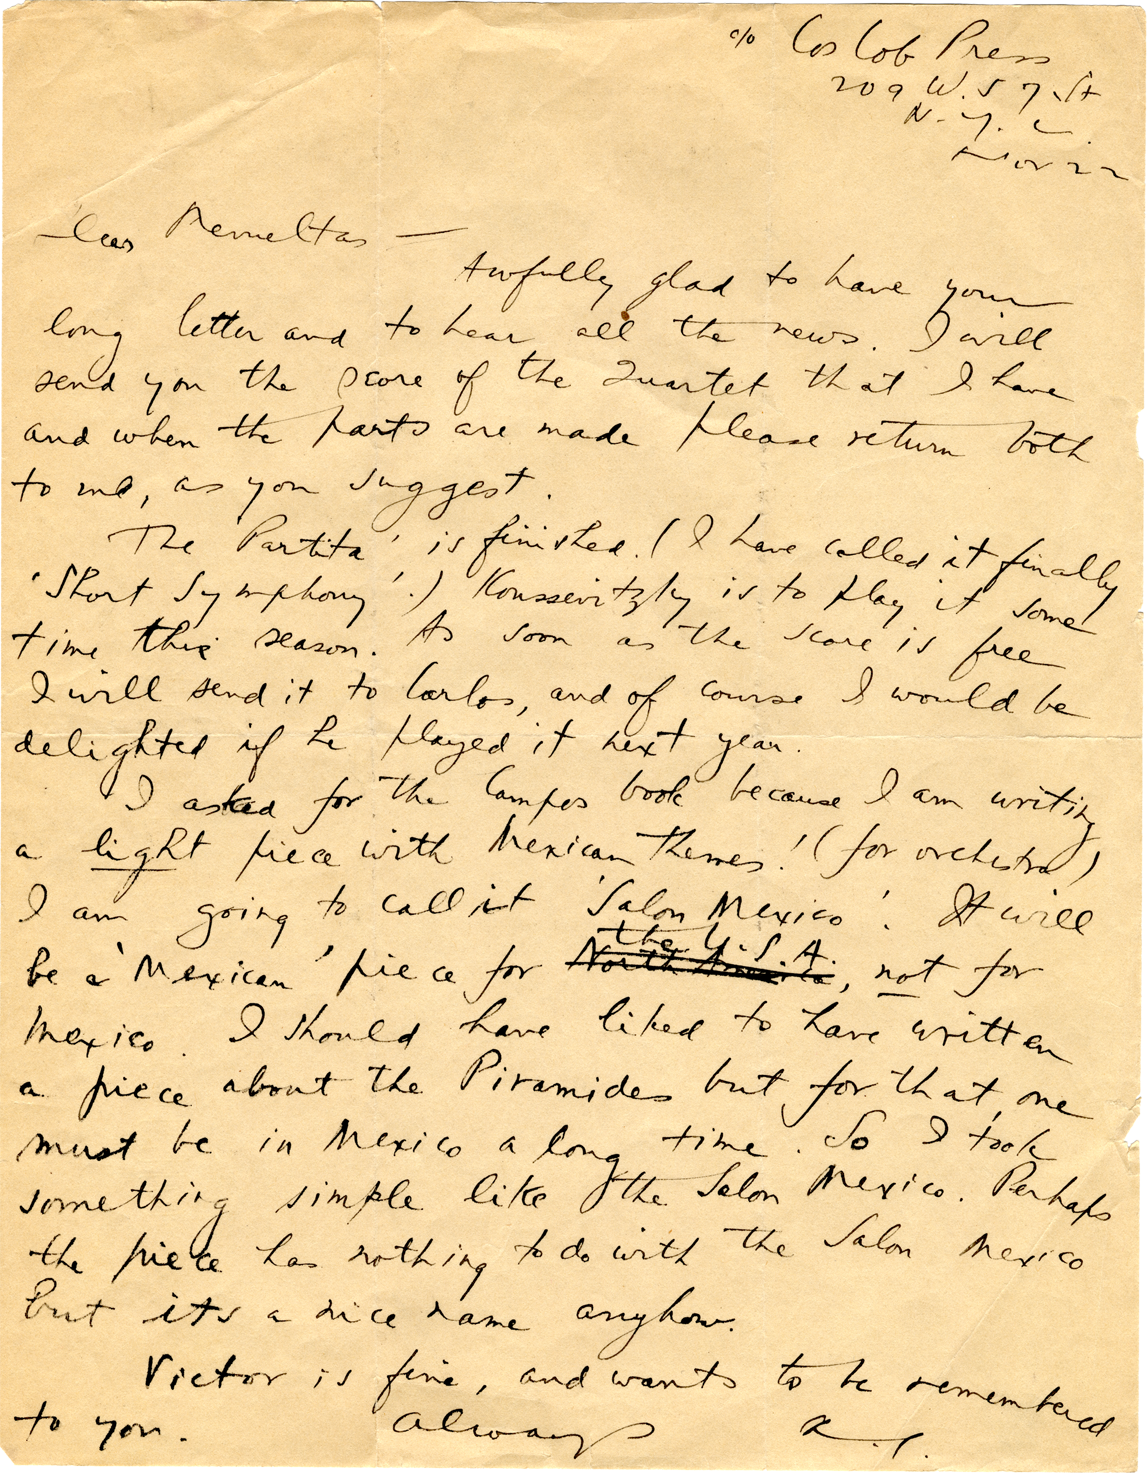 c/o Cos Cob Press
209 W. 57 St
N.Y.C.
Nov 22
Dear Revueltas —
Awfully glad to have your
long letter and to hear all the news. I will
send you the score of the Quartet that I have
and when the parts are made please return both
to me, as you suggest.
The 'Partita' is finished. (I have called it finally
'Short Symphony'.) Koussevitzky is to play it some
time this season. As soon as the score is free
I will send it to Carlos, and of course I would be
delighted if he played it next year.
I asked for the Campos book because I am writing
a light piece with Mexican themes! (for orchestra)
I am going to call it 'Salon Mexico'. It will
the U.S.A.
be a 'Mexican' piece for North America, not for
Mexico. I should have liked to have written
a piece about the Piramides but for that one
must be in Mexico a long time. So I took
something simple like the Salon Mexico. Perhaps
the piece has nothing to do with the Salon Mexico
but its a nice name anyhow.
Victor is fine, and wants to be remembered
to you. Always A.C.